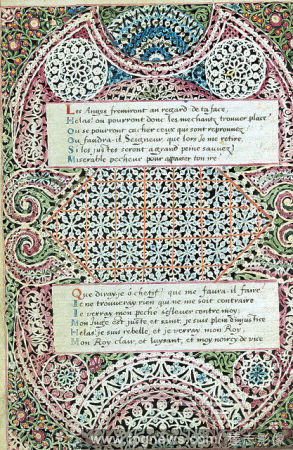 Les Anges fremiront au regard de ta face,
Helas! ou pourront donc les mechantz trouuer place
Ou se pourront cacher ceux qui sont reprouuez
Ou faudra-il Seigneur que lors Je me retire,
Si les justes seront a grand peine sauuez!
Miserable pecheur pour apaiser ton ire
Que diray-je ô chetif! que me faura-il faire
Je ne trouueray rien qui ne me soit contraire
Je verray mon peché s'esleuer contre moy,
Mon Juge est juste et saint, je suis plein d'injustice
Helas! je suis rebelle, et je verray mon Roy,
Mon Roy clair, et luysant, et moy noircy de vice
www.tpgnews.com/ 達志影像